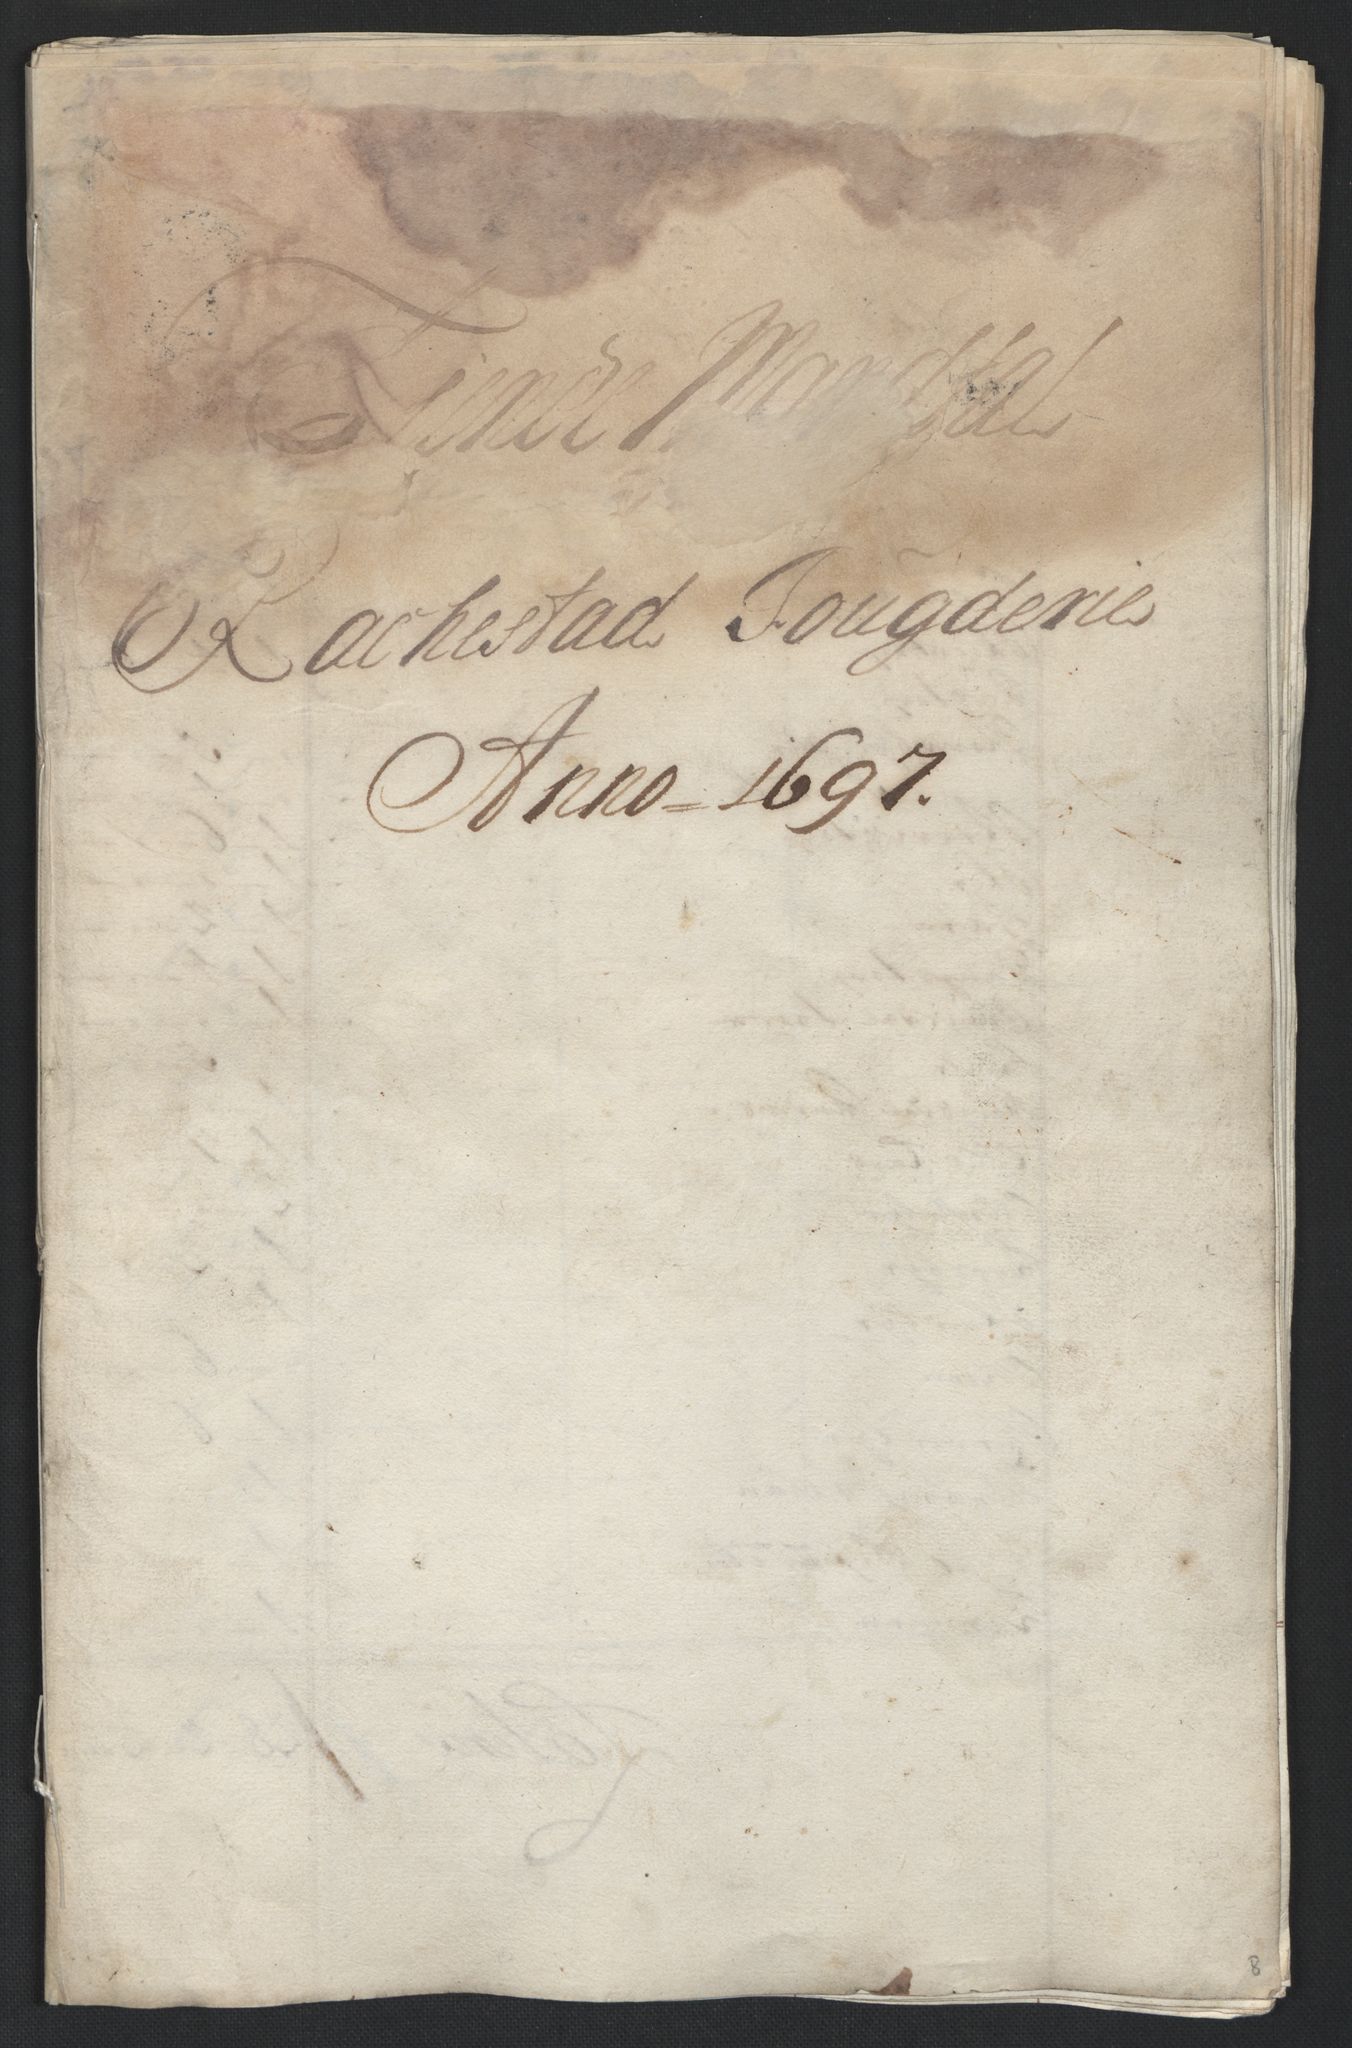 Tiende Mandtal
Rachestad Fougderie
Anno 1697.
8